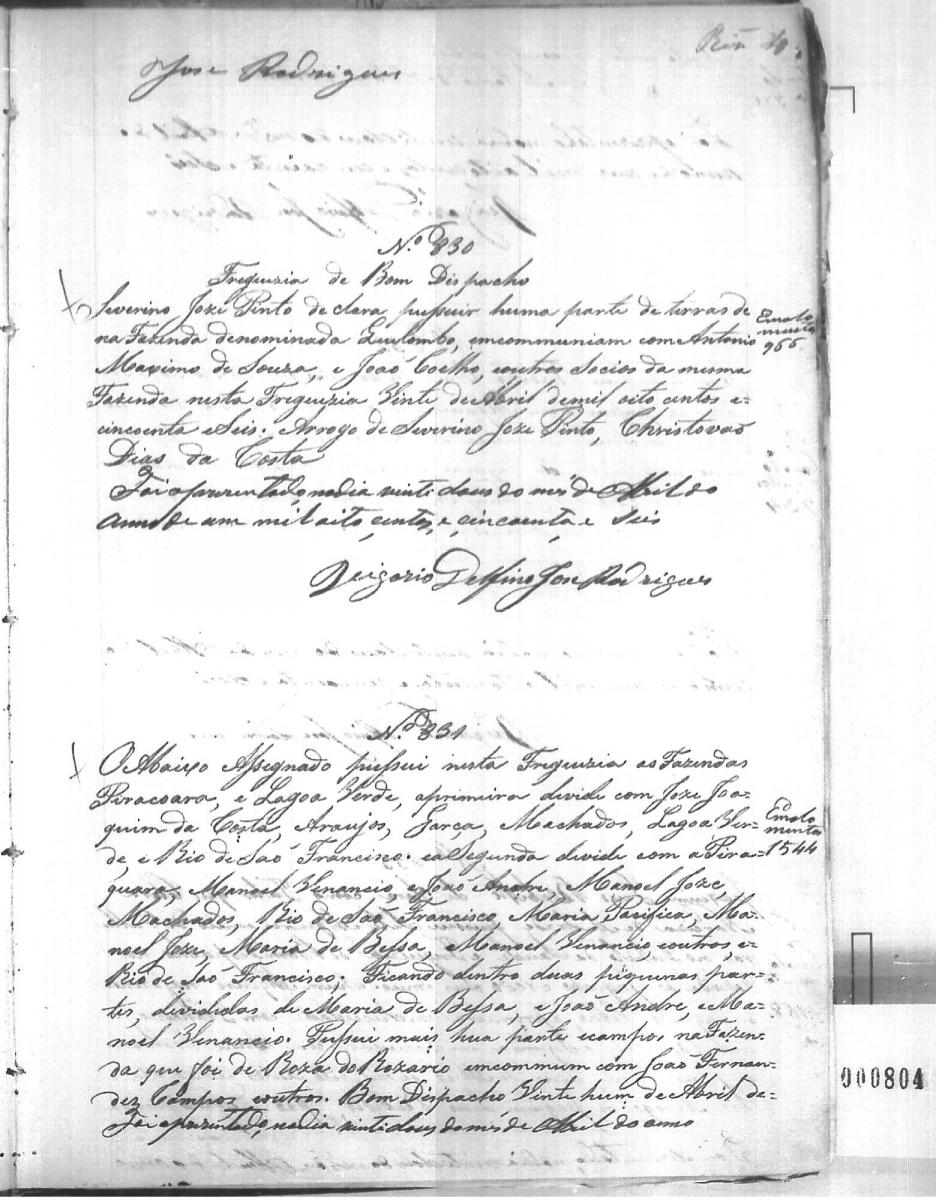 Jose Rodrigues
N.º 830
Freguezia de Bom Dispacho
Severino Joze Pinto declara pussuir huma parte de terras de
na Fazenda denominada Quilombo, emcommuniam com Antonio
Maximo de Souza, e João Coelho, eoutros Socios da mesma
Fazenda nesta Freguezia Vinte de Abril demil oito centos e-
cincoenta eSeis. Arrogo de Severino Joze Pinto, Christovaõ
Dias da Costa
Emolo
mentos
966
Foi aprezentado, nodia vinti dous do mes de Abril do
anno de um mil oito, centos, e cincoenta, e seis
Veigario Delfino Jose Rodrigues
N.º 831
O Abaixo Assegnado pussui nesta Freguezia as Fazendas
Piracoara, e Lagoa Verde, aprimeira divide com Joze Joa-
quim da Costa, Araujos, Garca, Machados, Lagoa Ver-
de, e Rio de Saõ Francisco. ea Segunda devide com a Pira-
quara, Manoel Venancio, e João Andre, Manoel Joze,
Machados, Rio de Saõ Francisco, Maria Pacifica, Ma-
noel Joze, Maria de Bessa, e Manoel Venancio, eoutros, e-
Rio de Saõ Francisco; Ficando dentro duas piquenas par-
tes, devididas de Maria de Bessa, e João Andre, e Ma-
noel Venancio. Pussui mais hua parte ecampos na Fazen-
da que foi de Roza do Rozario emcommum com João Fernan-
dez Campos eoutros. Bom Dispacho Vinte hum de Abril de-
Emolo
mentos
1544
Foi aprezentado, nodia vinti dous do mes de Abril do anno
000804